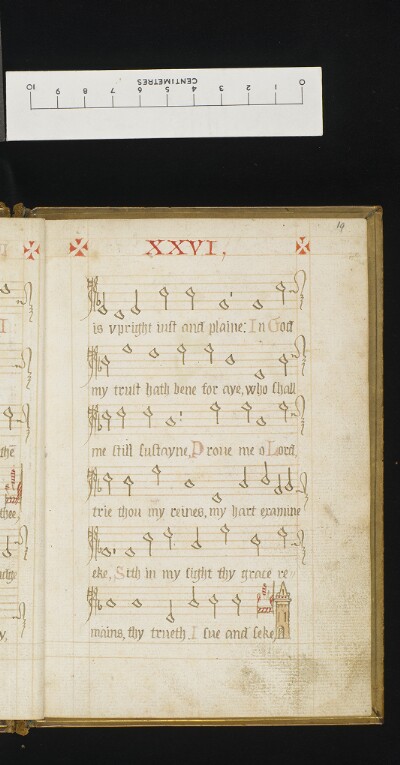 10 9 8 7 6 5 4 3 2 1 0
CENTIMETRES
19
XXVI,
is vpright iust and plaine; In God
my trust hath bene for aye, who shall
me still sustayne, Proue me o Lord,
thē
trie thou my reines, my hart examine
thee
eke, Sith in my sight thy grace re
mains, thy trueth, I sue and seke
y,